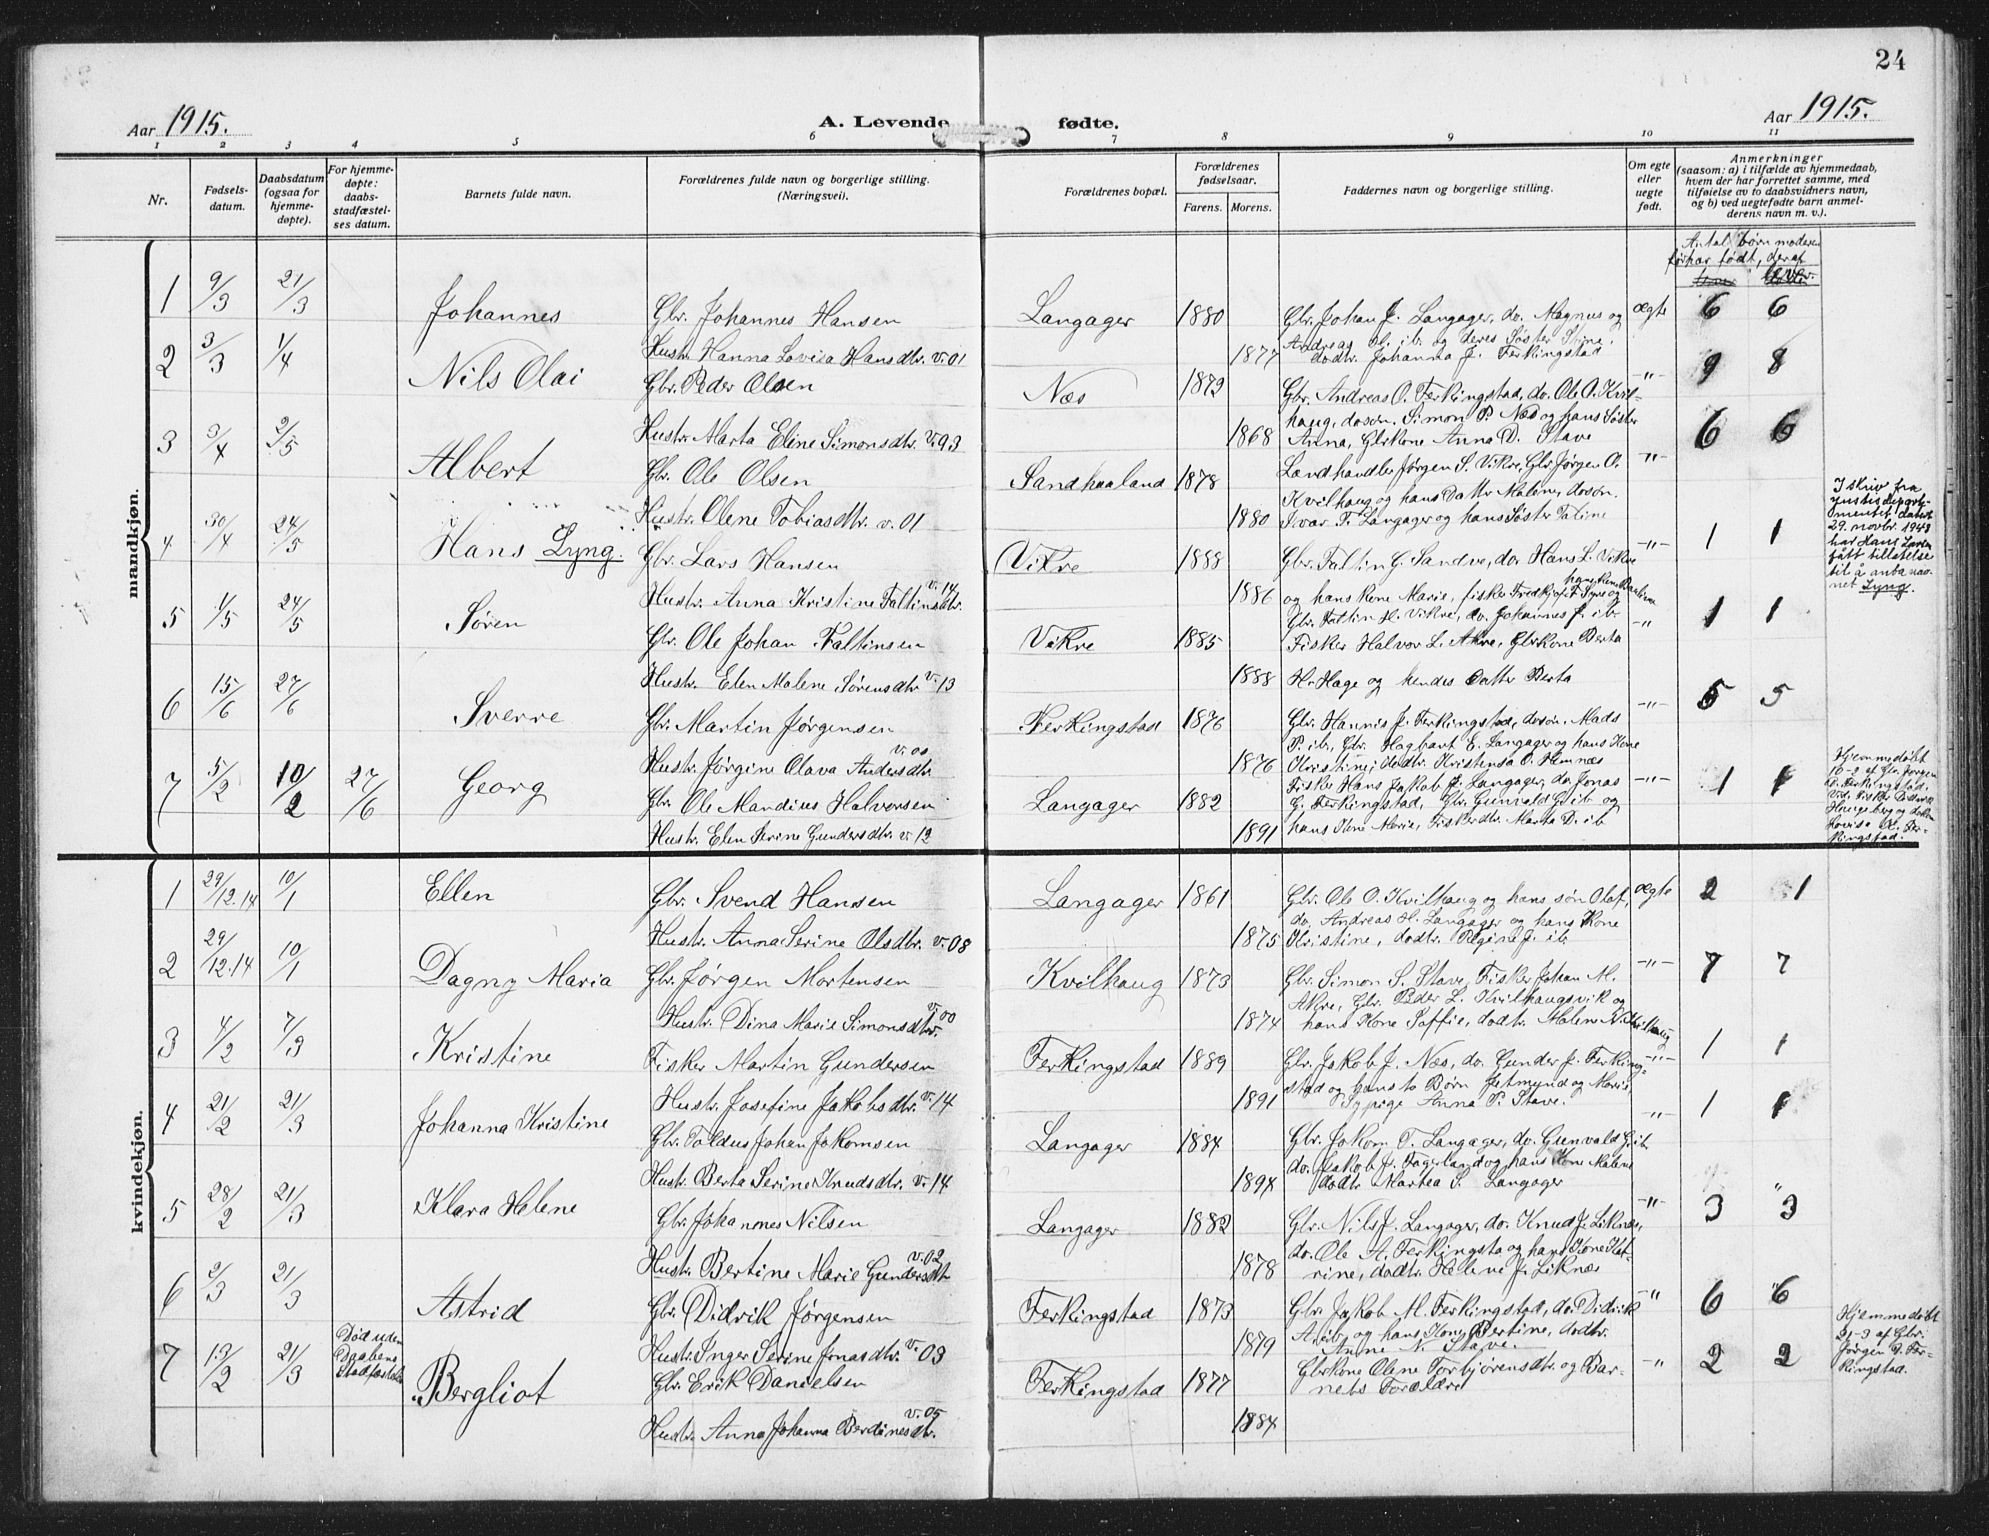 24
Aar 1915.
A. Levende fødte.
Aar 1915.
1 2 3 4 5 6 7 8 9 10 11
Nr.
Fødsels-
datum.
Daabsdatum
(ogsaa for
hjemme-
døpte).
For hjemme-
døpte:
daabs-
stadfæstel-
ses datum.
Barnets fulde navn.
Forældrenes fulde navn og borgerlige stilling.
(Næringsvei).
Forældrenes bopæl.
Forældrenes
fødselsaar.
Farens. Morens.
Faddernes navn og borgerlige stilling.
Om egte
eller
uegte
født.
Anmerkninger
(saasom: a) i tilfælde av hjemmedaab,
hvem der har forrettet samme, med
tilføielse av to daabsvidners navn,
og b) ved uegtefødte barn anmel-
derens navn m. v.).
Antal børn moderen
før har født, deraf
lever.
mandkjøn.
1 9/3 21/3 Johannes Gbr. Johannes Hansen Langager 1880 Gbr. Johan J. Langager, do. Magnus og ægte 6 6
Hustr. Hanna Lovisa Hansdtr. v. 01 1877 Andreas H. ib. og deres Søster Stine,
dodtr. Johanna J. Ferkingstad
2 3/3 1/4 Nils Olai Gbr. Peder Olsen Næs 1872 Gbr. Andreas O. Ferkingstad, do. Ole O. Kvil- -"- 9 8
Hustr. Marta Eline Simonsdtr. v. 93 1868 haug, dosøn. Simon P. Næs og hans Søster
Anna, Gbrkone Anna D. Stave
3 3/4 2/5 Albert Gbr. Ole Olsen Sandhaaland 1878 Landhandler Jørgen S. Vikre, Gbr. Jørgen O. -"- 6 6
Kvilhaug og hans Datter Malene, dosøn.
Hustr. Olene Tobiasdtr. v. 01 1880 Ivar T. Langager og hans Søster Taline
4 30/4 24/5 Hans Lyng. Gbr. Lars Hansen Vikre 1888 Gbr. Faltin G. Sandve, do. Hans L. Vikre -"- 1 1
Hustr. Anna Kristine Faltinsdtr. v. 14 1886 og hans kone Marie, fisker Fredkj of T. Syre og
I skriv fra
justisdeparte-
mentet datert
29. novbr. 1943
har Hans Larsen
fått tillatelse
til å anta nav-
net Lyng.
5 1/5 24/5 Søren Gbr. Ole Johan Faltinsen Vikre 1885 Gbr. Faltin H. Vikre, do. Johannes J. ib. -"- 1 1
Fisker Halvor L. Akre, Gbrkone Berta
Hustr. Elen Malene Sørensdtr. v. 13 1888 H. Hage og hendes Datter Berta
6 15/6 27/6 Sverre Gbr. Martin Jørgensen Ferkingstad 1876 Gbr. Hannis J. Ferkingstad, dosøn. Mads -"- 5 5
P. ib., Gbr. Hagbart E. Langager og hans Kone
Hustr. Jørgine Olava Andersdtr. v. 00 1876 Kristine, dodtr. Kristensa O. Hemnæs
7 5/2 10/2 27/6 Georg Gbr. Ole Mandius Halvorsen Langager 1882 Fisker Hans Jakob J. Langager, do. Jonas -"- 1 1
G. Ferkingstad, Gbr. Gunvald G. ib. og
Hustr. Elen Serine Gundersdtr. v. 12 1891 hans Kone Marie, Fiskerdtr. Marta D. ib.
Hjemmedøbt
10-2 af Gbr. Jørgen
D. Ferkingstad.
Haugeberg og
Lovisa
Fer-
kingstad.
kvindekjøn.
1 29/12.14 10/1 Ellen Gbr. Svend Hansen Langager 1861 Gbr. Ole O. Kvilhaug og hans søn Olaf, ægte 2 1
do. Andreas H. Langager og hans Kone
Hustr. Anna Serine Olsdtr. v. 08 1875 Kristine, dodtr. Regine J. ib.
2 29/12.14 10/1 Dagny Maria Gbr. Jørgen Mortensen Kvilhaug 1873 Gbr. Simon S. Stave, Fisker Johan M. -"- 7 7
Akre, Gbr. Peder L. Kvilhaugsvik og
Hustr. Dina Marie Simonsdtr. v. 00 1874 hans Kone Soffie, dodtr. Malene N. Kvilhaug
3 4/2 7/3 Kristine Fisker Martin Gundersen Ferkingstad 1889 Gbr. Jakob J. Næs, do. Gunder J. Ferking- -"- 1 1
stad og hans to Børn Gutmynd og Marie,
Hustr. Josefine Jakobsdtr. v. 14 1891 Sypige Anna P. Stave.
4 21/2 21/3 Johanna Kristine Gbr. Toldus Johan Jakomsen Langager 1884 Gbr. Jakom T. Langager, do. Gunvald G. ib. -"- 1 1
do. Jakob J. Fagerland og hans Kone Malene
Hustr. Berta Serine Knudsdtr. v. 14 1894 dodtr. Martea S. Langager
5 28/2 21/3 Klara Helene Gbr. Johannes Nilsen Langager 1882 Gbr. Nils J. Langager, do. Knud J. Liknæs, -"- 3 3
do. Ole A. Ferkingstad og hans Kone Kat-
Hustr. Bertine Marie Gundersdtr. v. 02 1878 rine, dodtr. Helene J. Liknæs
6 2/3 21/3 Astrid Gbr. Didrik Jørgensen Ferkingstad 1873 Gbr. Jakob M. Ferkingstad, do. Didrik -"- 6 6
A. ib. og hans Kone Bertine, dodtr.
Hustr. Inger Serine Jonasdtr. v. 03 1879 Anne N. Stave.
7 13/2 21/3 Død uden
Daabens
Stadfæstelse
Bergliot Gbr. Erik Danielsen Ferkingstad 1877 Gbrkone Olene Torbjørensdtr. og Bar- -"- 2 2
nets Forældre
Hustr. Anna Johanna Berdinesdtr. v. 05 1884
Hjemmedøbt
21-3 af Gbr.
Jørgen D. Fer-
kingstad.